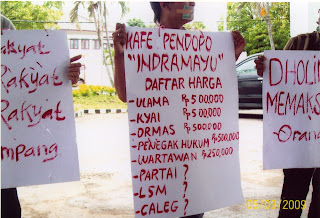 Rakyat
Rakyat
Rakyat
mpang
KAFE PENDOPO
"INDRAMAYU"
DAFTAR HARGA
-ULAMA Rp 500.000
-KYAI Rp 500.000
-ORMAS Rp 500.000
-PENEGAK HUKUM Rp 500.000
-WARTAWAN Rp 250.000
-PARTAI ?
-LSM ?
-CALEG ?
DHOLI
MEMAKS
-Oran
2009